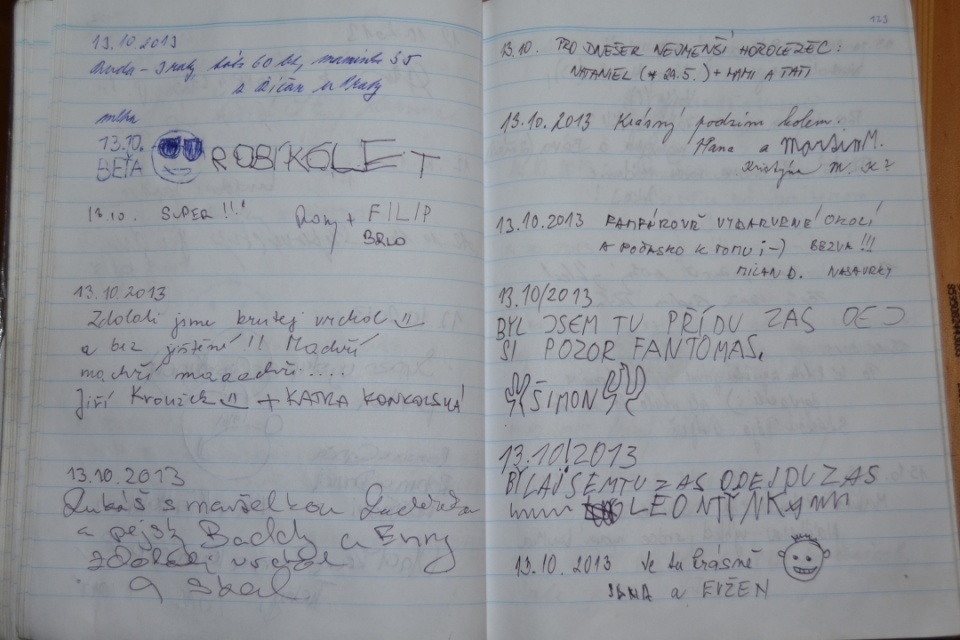 13.10.2013
3 roky táta 60 let, maminka 35
z Prahy
mlha
13.10.
BETA ROBIKOLET
13.10. SUPER !!! Rony + FILIP
BRNO
13.10.2013
Zdolali jsme krutej vrchol
a bez jištění !! Machři
machři maaachři.....
Jiří Kroužek + KATKA KONKOLSKÁ
13.10.2013
Lukáš s manželkou
a pejsky Baddy a Enny
zdolali vrchol
a skal
123
13.10. PRO DNEŠEK NEJMENŠÍ HOROLEZEC:
NATANIEL (* 24.5.) + MAMI A TATI
13.10.2013 Krásný podzim kolem.
Hana a Martin M.
Kristýna M.
13.10.2013 FAMFÁROVĚ VYDAŘENÉ OKOLÍ
A POČASKO K TOMU ;-) BEZVA !!!
MILAN D. NASAVRKY
13.10/2013
BYL JSEM TU PŘÍDU ZAS DEJ
SI POZOR FANTOMAS.
ŠIMON
13.10/2013
BÍLAJSEMTU ZAS ODEJDU ZAS
LEONTÝNKA
13.10.2013 Je tu krásně
JANA a EVŽEN